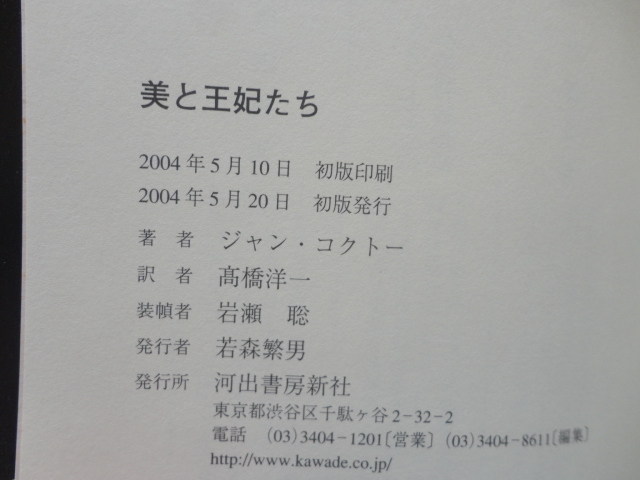 美と王妃たち
2004年5月10日　初版印刷
2004年5月20日　初版発行
著　者　ジャン・コクトー
訳　者　髙橋洋一
装幀者　岩瀬　聡
発行者　若森繁男
発行所　河出書房新社
東京都渋谷区千駄ヶ谷2-32-2
電話　(03)3404-1201〔営業〕(03)3404-8611〔編集〕
http://www.kawade.co.jp/